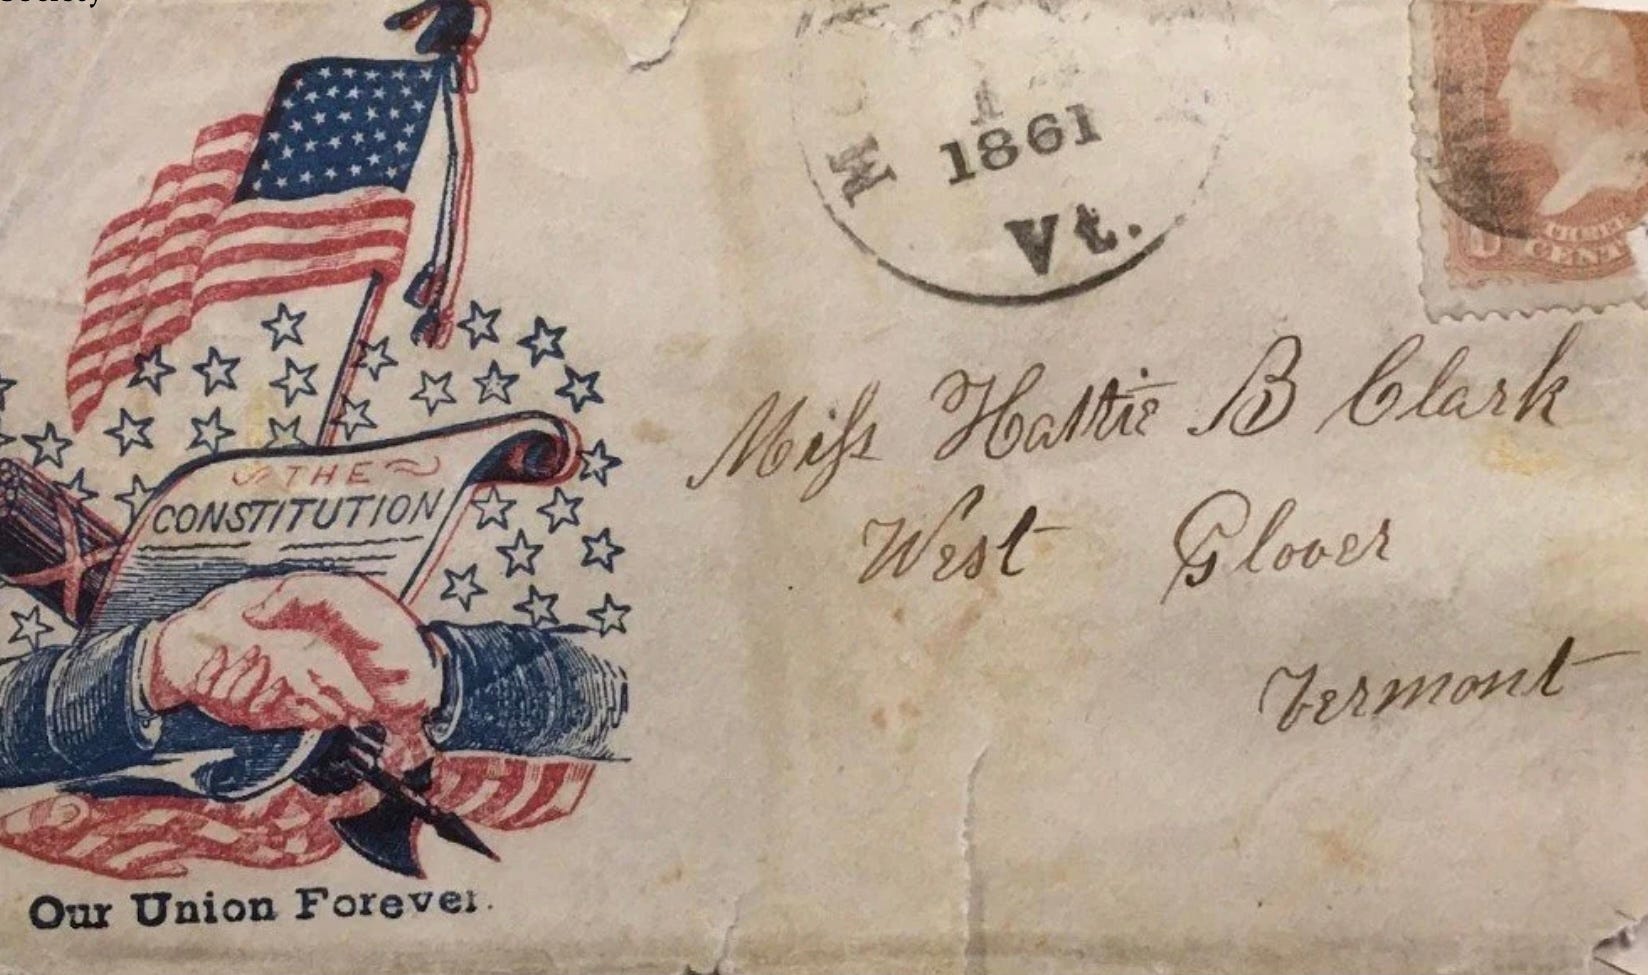 1861
Vt.
CENT
THE
CONSTITUTION
Miss Hattie B Clark
West Glover
Vermont
Our Union Forever.